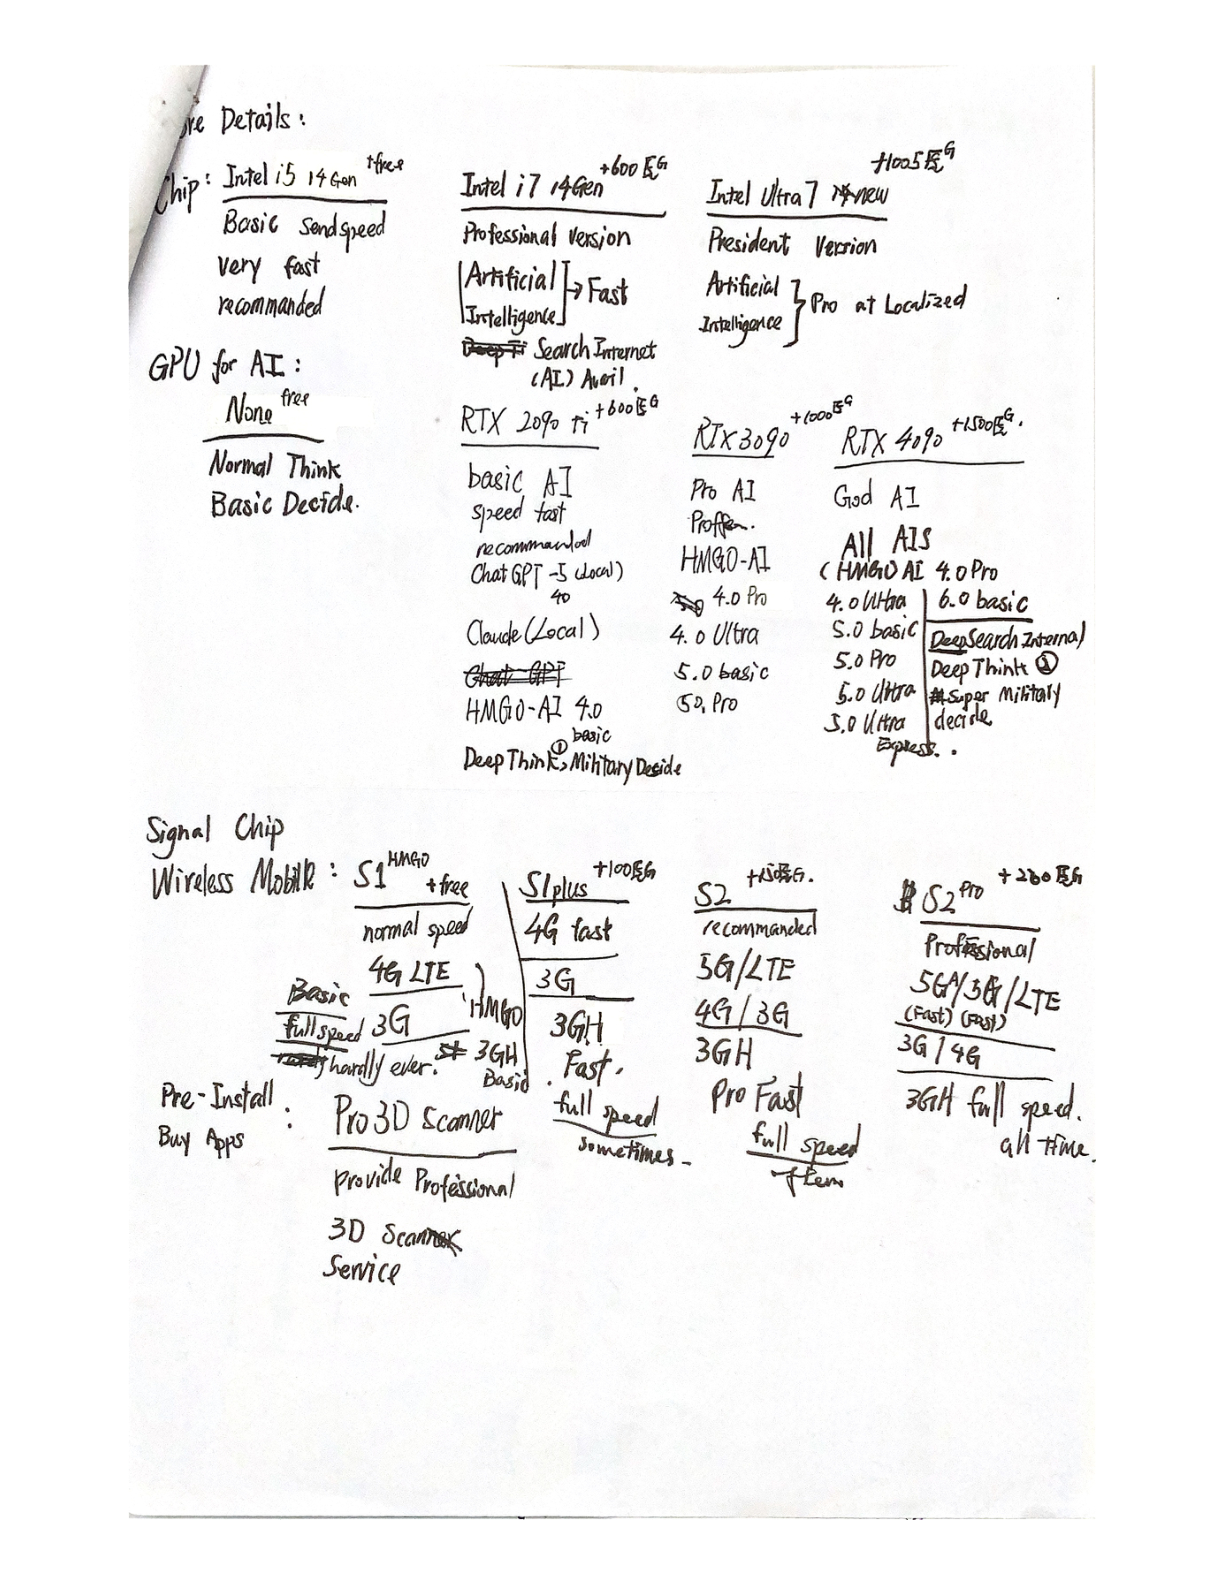 ore Details:
Chip: Intel i5 14Gen +free
Basic sendspeed
very fast
recommanded
Intel i7 14Gen +600 EG
Professional Version
Artificial
Intelligence → Fast
Search Internet
(AI) Avail.
Intel Ultra7 new +1005 EG
President Version
Artificial
Intelligence } Pro at Localized
GPU for AI:
None free
Normal Think
Basic Decide.
RTX 2090 Ti +600 EG
basic AI
speed fast
recommanded
ChatGPT -5 (Local)
40
Claude (Local)
Chat GPT
HMGO-AI 4.0
basic
Deep Think①, Military Decide
RTX 3090 +1000 EG
Pro AI
HMGO-AI
4.0 Pro
4.0 Ultra
5.0 basic
50. Pro
RTX 4090 +1500 EG.
God AI
All AIS
(HMGO AI 4.0 Pro
4.0 Ultra
5.0 basic
5.0 Pro
5.0 Ultra
5.0 Ultra
Express.
6.0 basic
DeepSearch Internal
Deep Think ②
Super Military
decide
Signal Chip
Wireless Mobile: S1 HMGO +free
normal speed
4G LTE
3G
HMGO
3GH
Basic
Basic
full speed
hardly ever.
S1plus +100 EG
4G fast
3G
3GH
Fast.
full speed
sometimes
S2 +150 EG.
recommanded
5G/LTE
4G/3G
3GH
Pro Fast
full speed
often
S2 Pro +200 EG
Professional
5GA/5G/LTE
(Fast) (Fast)
3G/4G
3GH full speed.
all time.
Pre-Install
Buy Apps :
Pro 3D Scanner
provide Professional
3D Scanner
Service